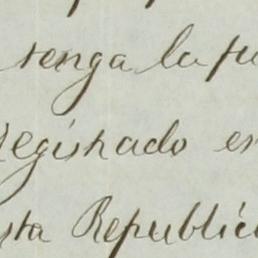 tenga la fu
Registrado en
sta Republic